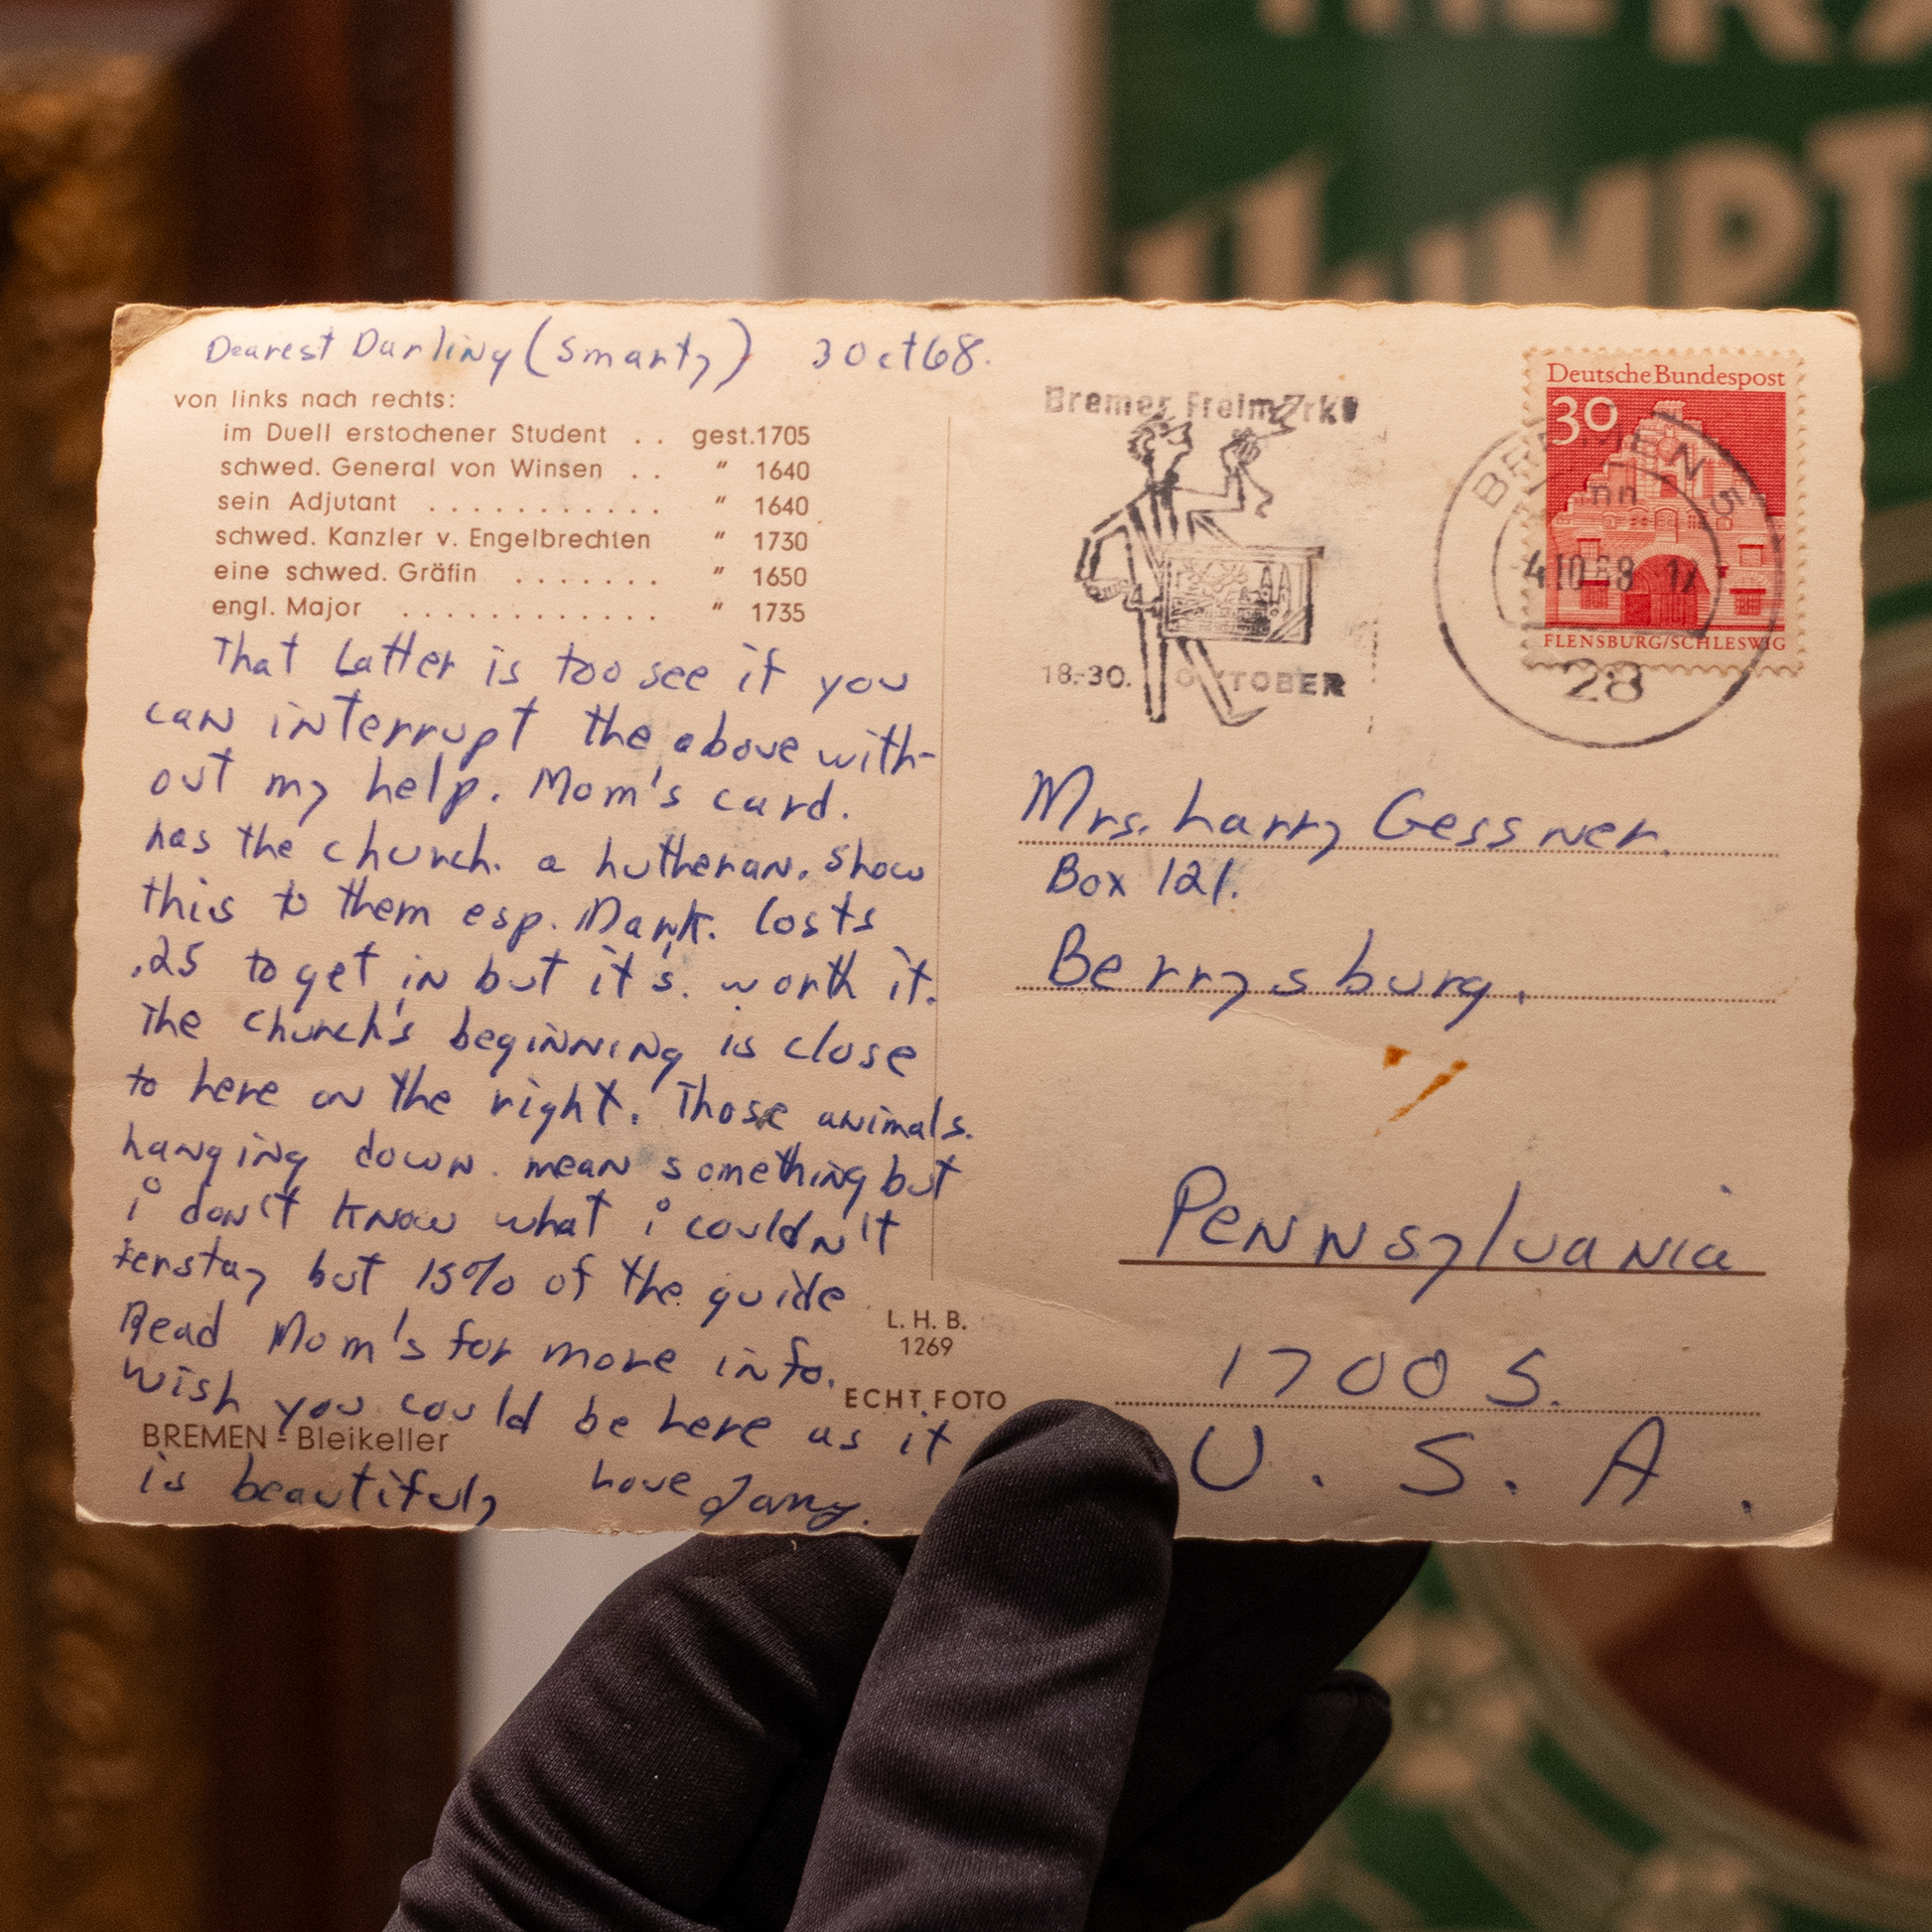 Dearest Darling (Smarty) 3 Oct 68.
von links nach rechts:
im Duell erstochener Student . . gest. 1705
schwed. General von Winsen . . " 1640
sein Adjutant . . . . . . . . . . . " 1640
schwed. Kanzler v. Engelbrechten " 1730
eine schwed. Gräfin . . . . . . . " 1650
engl. Major . . . . . . . . . . . . " 1735
That Latter is too see if you
can interrupt the above with-
out my help. Mom's card.
has the church. a Lutheran. Show
this to them esp. Mark. Costs
.25 to get in but it's. worth it.
The church's beginning is close
to here on the right. Those animals.
hanging down. mean something but
i don't know what i couldn't
but 15% of the guide
Read Mom's for more info.
Wish you could be here as it
is beautiful, Love Larry.
BREMEN - Bleikeller
L. H. B.
1269
ECHT FOTO
Bremer Freimarkt
18.-30. OKTOBER
Deutsche Bundespost
30
FLENSBURG/SCHLESWIG
BREMEN 5
nn
-4.10.68-17
28
Mrs. Larry Gessner.
Box 121.
Berrysburg.
Pennsylvania
17005.
U. S. A.
THE